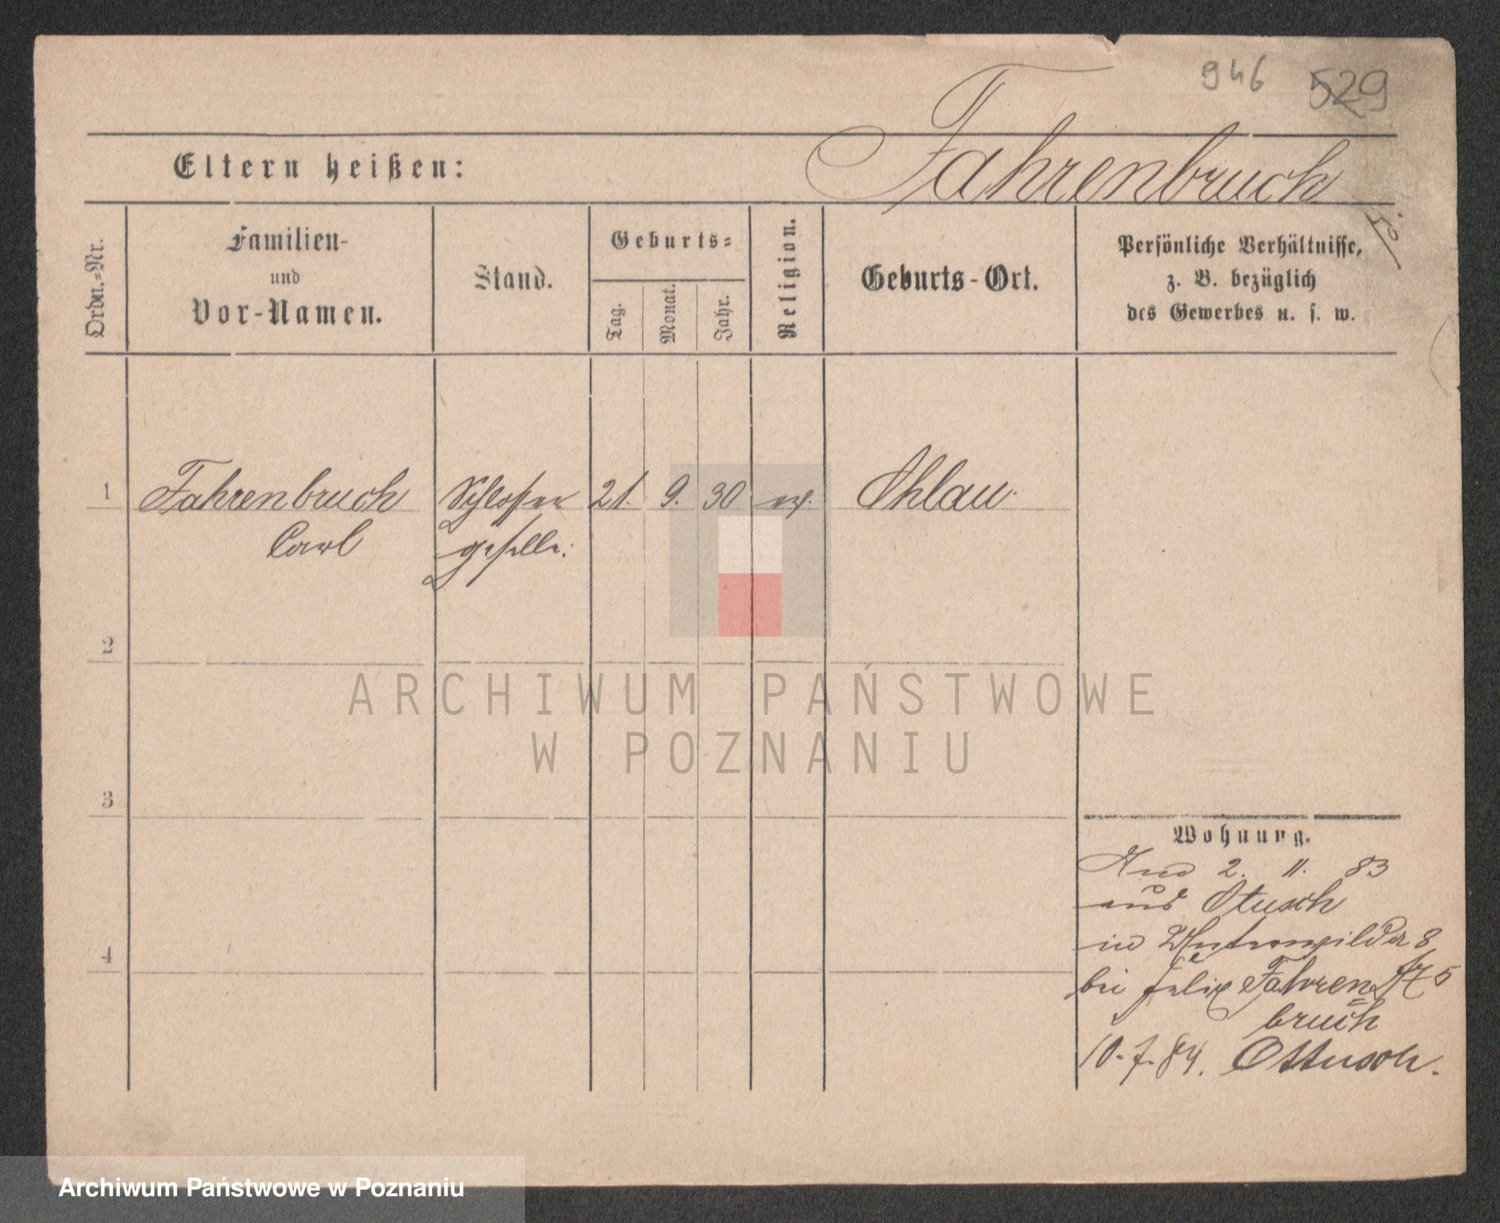 946 529
Fahrenbruch
Eltern heißen:
Ordn.-Nr.
Familien-
und
Vor-Namen.
Stand.
Geburts-
Tag.
Monat.
Jahr.
Religion.
Geburts-Ort.
Persönliche Verhältnisse,
z. B. bezüglich
des Gewerbes u. s. w.
1 Fahrenbruch Schlosser 21. 9. 30 ev. Ohlau
Carl geselle.
2
ARCHIWUM PAŃSTWOWE
W POZNANIU
3
4
Wohnung.
2. 11. 83
aus
in 8
bei Felix Fahren
bruch
10. 7. 84.
Archiwum Państwowe w Poznaniu